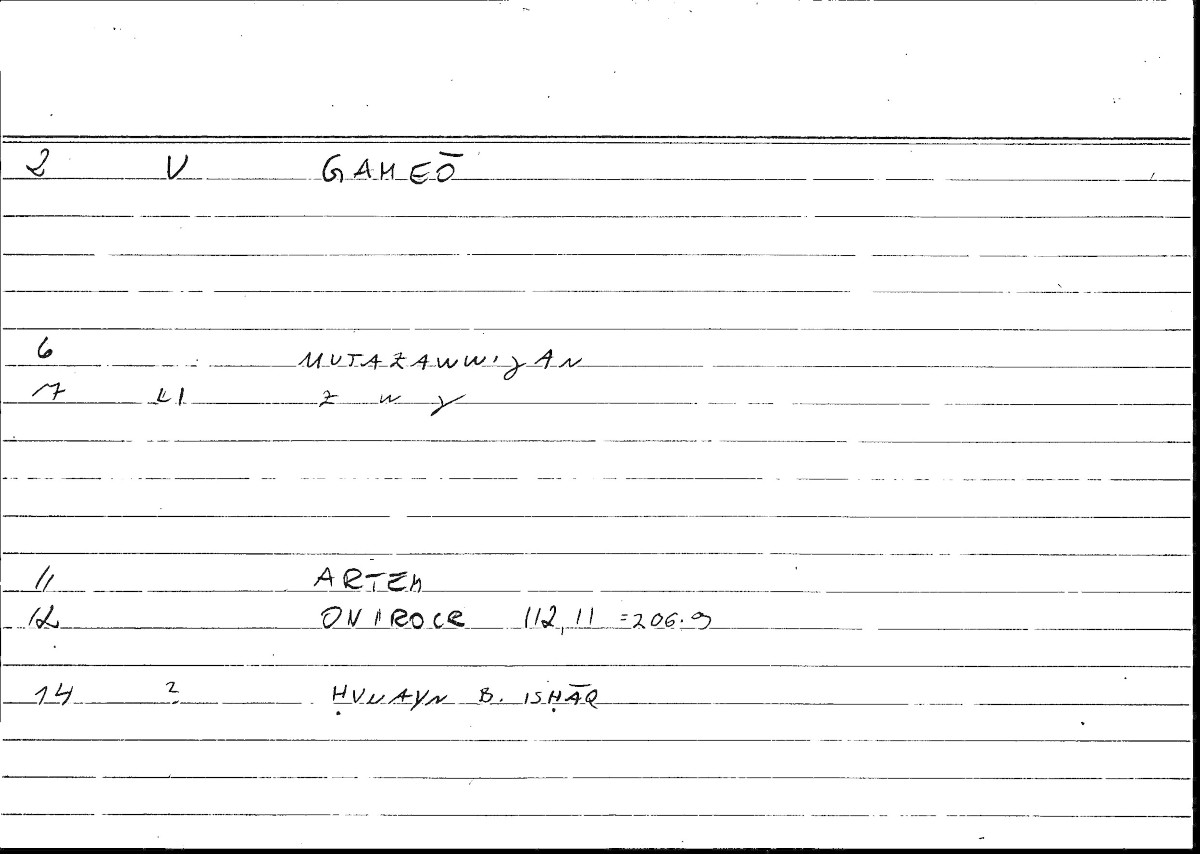 2 V GAMEŌ
6 MUTAZAWWIǧAN
7 LI z w ǧ
11 ARTEM
12 ONIROCR 112,11 =206.9
14 ? ḤUNAYN B. ISḤĀQ